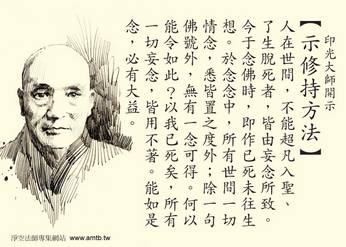 印光大師開示
【示修持方法】
人在世間，不能超凡入聖、
了生脫死者，皆由妄念所致。
今于念佛時，即作已死未往生
想。於念念中，所有世間一切
情念，悉皆置之度外；除一句
佛號外，無有一念可得。何以
能令如此？以我已死矣，所有
一切妄念，皆用不著。能如是
念，必有大益。
淨空法師專集網站 www.amtb.tw